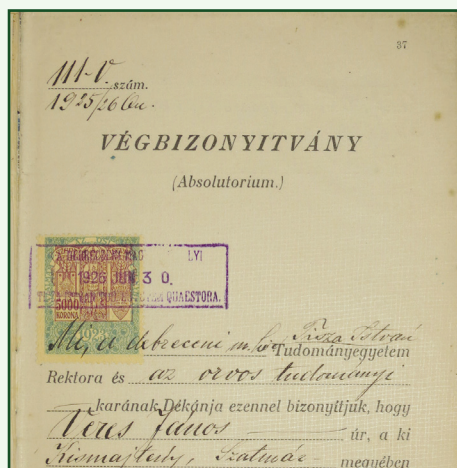 37
111-V. szám.
1925/26 tan.
VÉGBIZONYITVÁNY
(Absolutorium.)
A DEBRECENI MAG LYI
1926 JUN. 30.
QUAESTORA.
5000
KORONA
Mi, a debreceni m. kir. Tisza István Tudományegyetem
Rektora és az orvos tudományi
karának Dékánja ezennel bizonyitjuk, hogy
Veres János úr, a ki
Kismajtény, Szatmár megyében